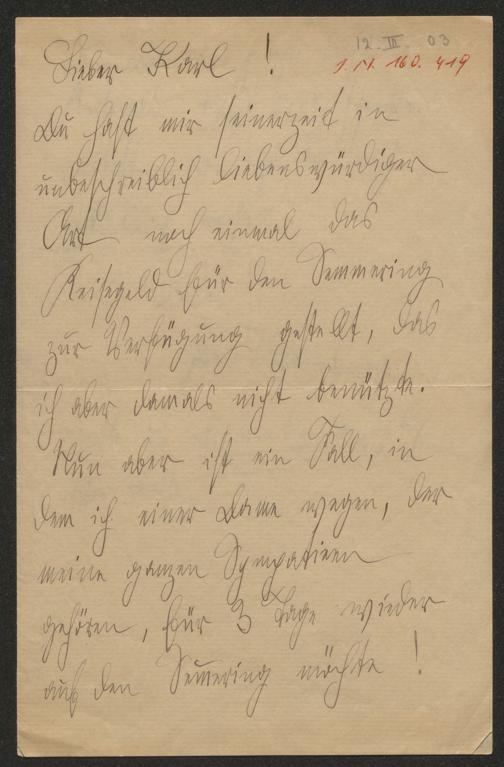 12. III. 03
Lieber Karl !
Du hast mir seinerzeit in
unbeschreiblich liebenswürdiger
Art noch einmal das
Reisegeld für den Semmering
zur Verfügung gestellt, das
ich aber damals nicht benützte.
Nun aber ist ein Fall, in
dem ich einer Dame wegen, der
meine ganzen Sympatieen
gehören, für 3 Tage wieder
auf den Semering möchte !